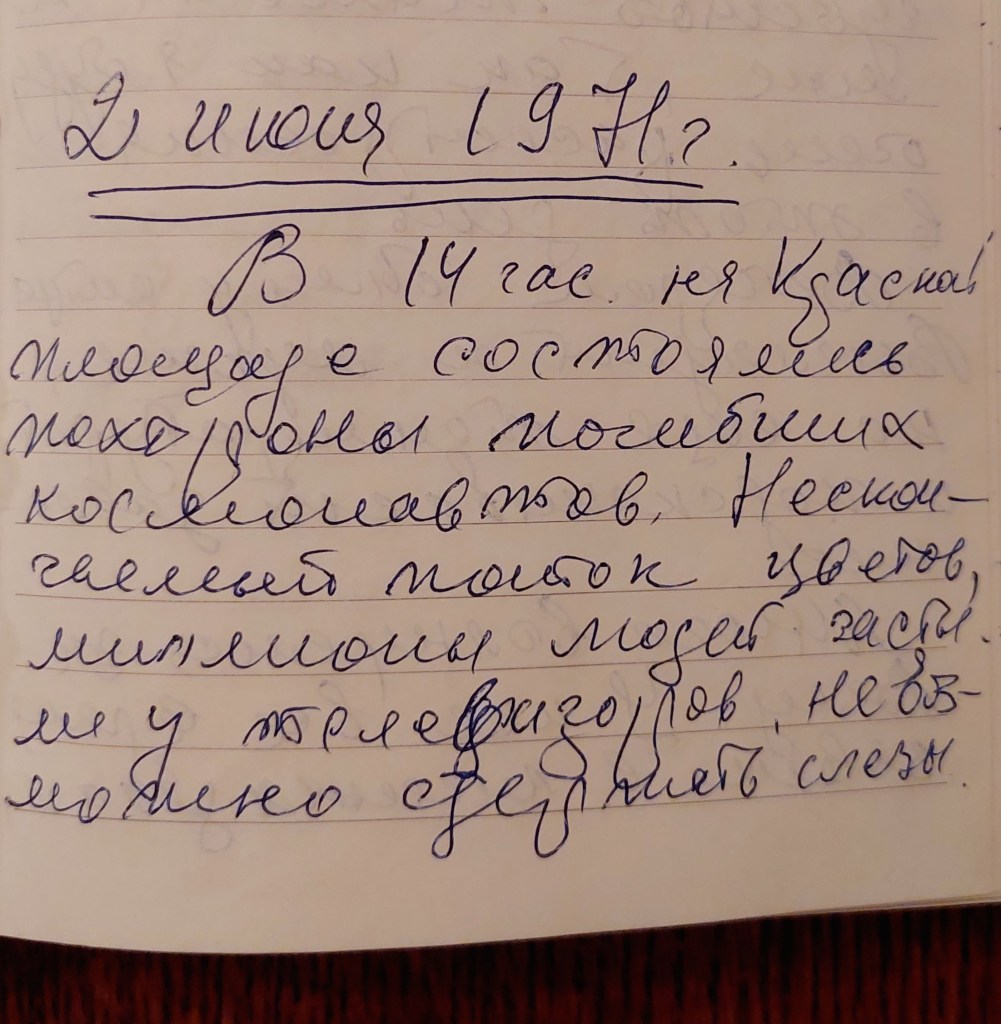 2 июля 1971 г.
В 14 час. на Красной
площаде состоялись
похороны погибших
космонавтов. Нескон-
чаемый поток цветов,
миллионы людей засты-
ли у телевизоров, невоз-
можно сдержать слезы.